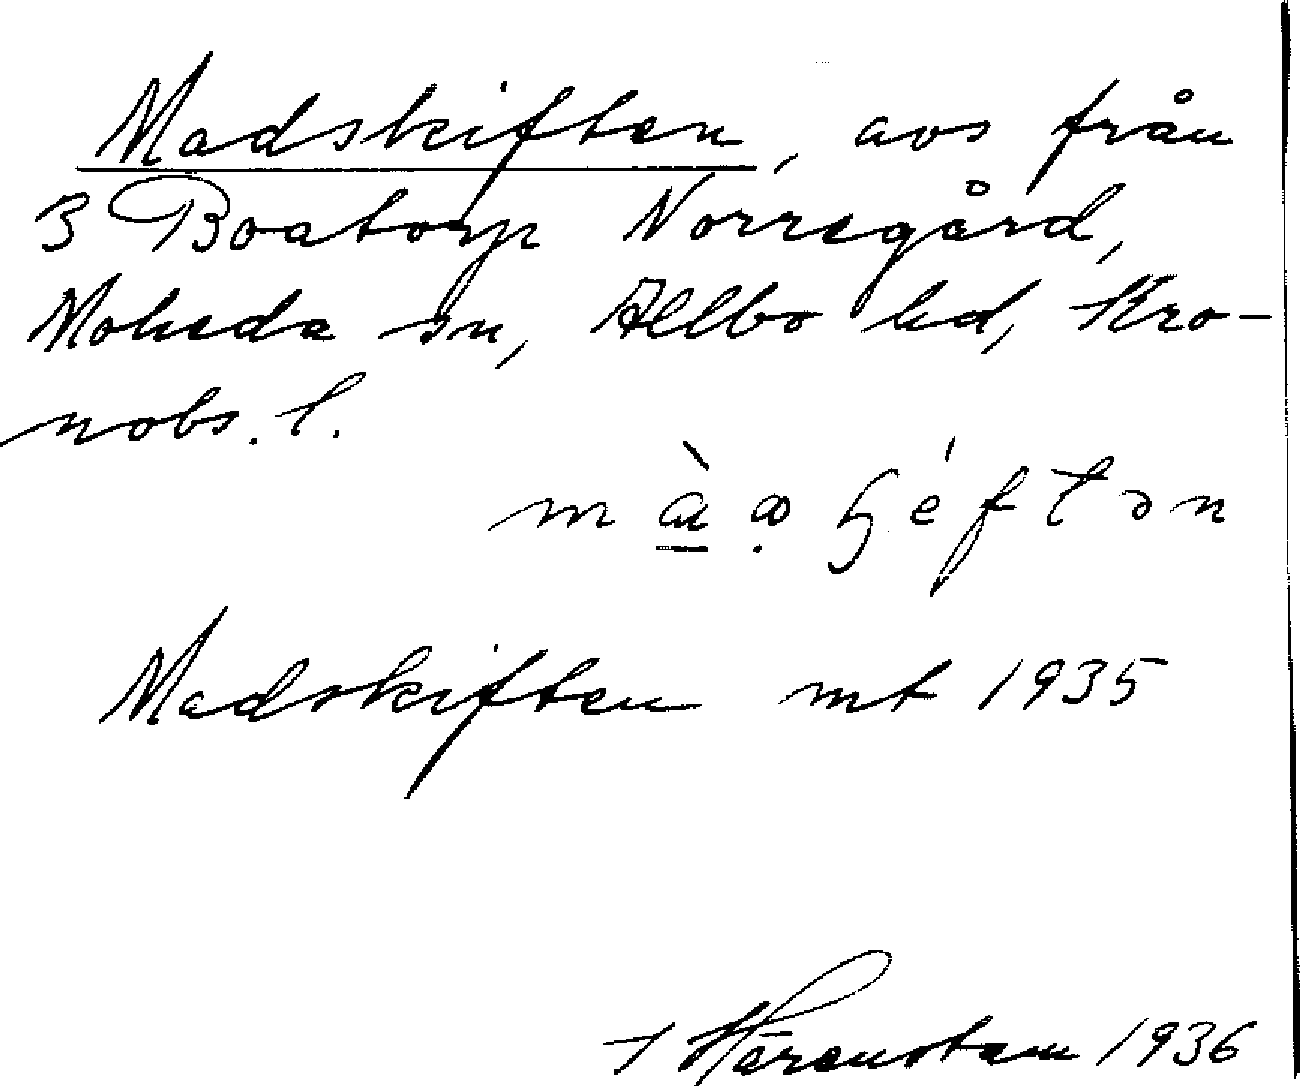 Madskiften, avs från
3 Boatorp Norregård,
Moheda sn, Allbo hd, Kro-
nobs. l.
Madskiften mt 1935
Härenstam 1936